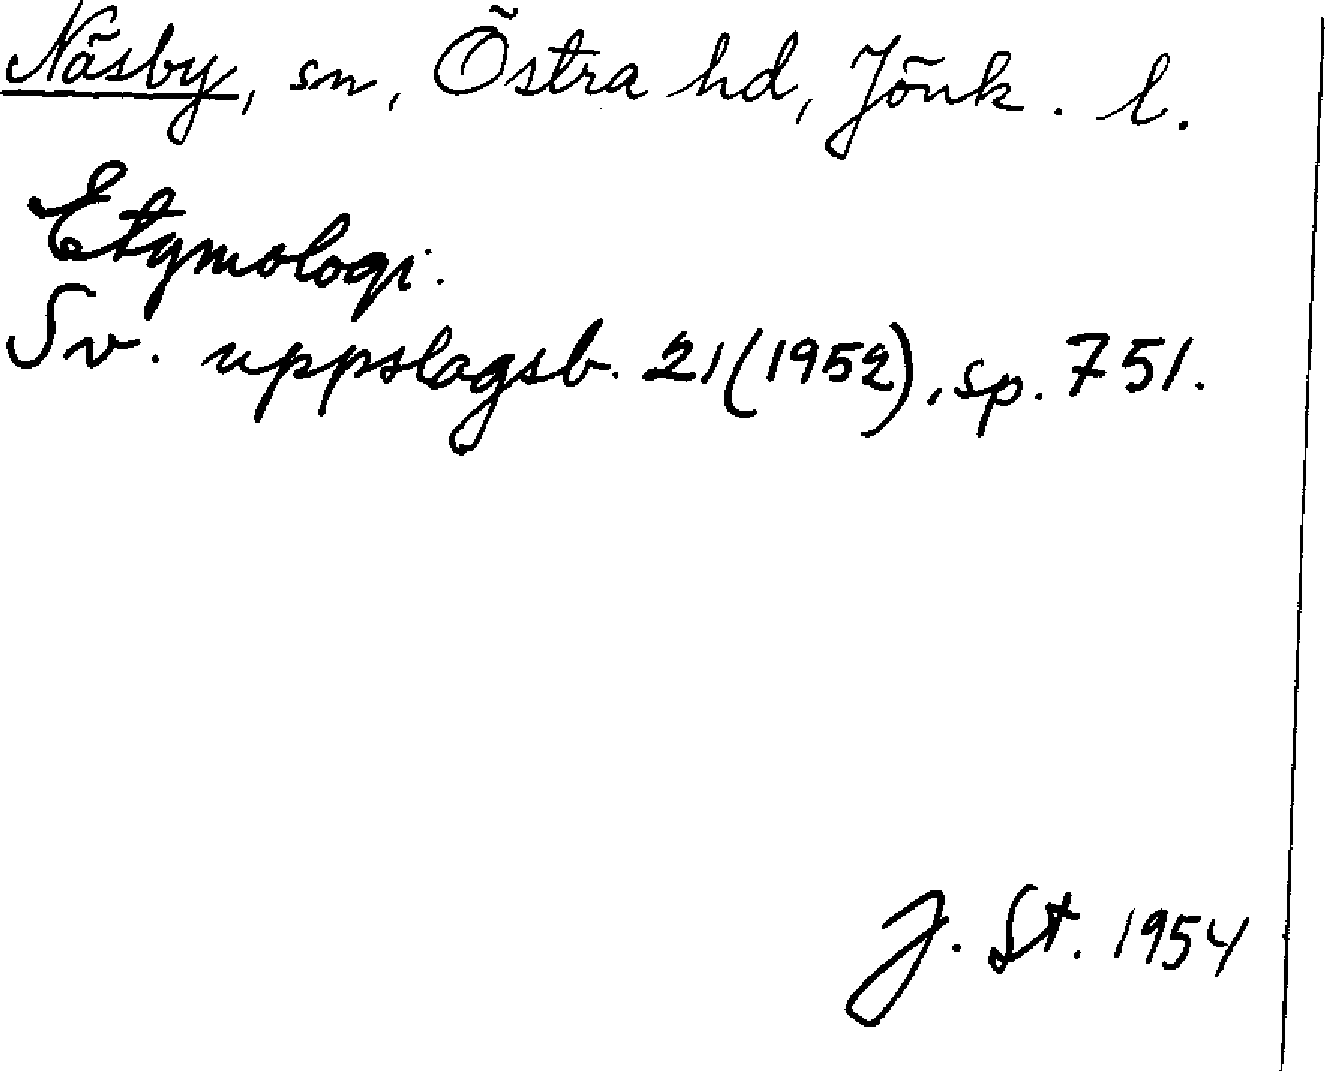 Näsby, sn, Östra hd, Jönk. l.
Etymologi.
Sv. uppslagsb. 21(1952), sp. 751.
J. St. 1954